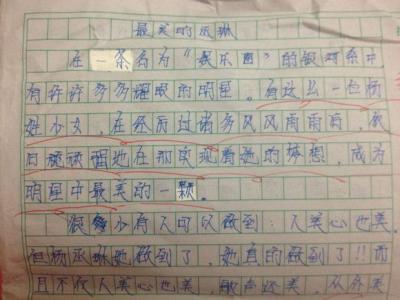 最美的丞琳
在一条名为“娱乐圈”的银河系中
有许许多多耀眼的明星。有这么一位杨
姓少女，在经历过诸多风风雨雨后，依
旧璀璨耀地在那实现着她的梦想，成为
明星中最美的一颗。
很少有人可以做到：人美心也美
但杨丞琳她做到了，她真的做到了!!而
且不仅人美心也美，歌声还美，从外美